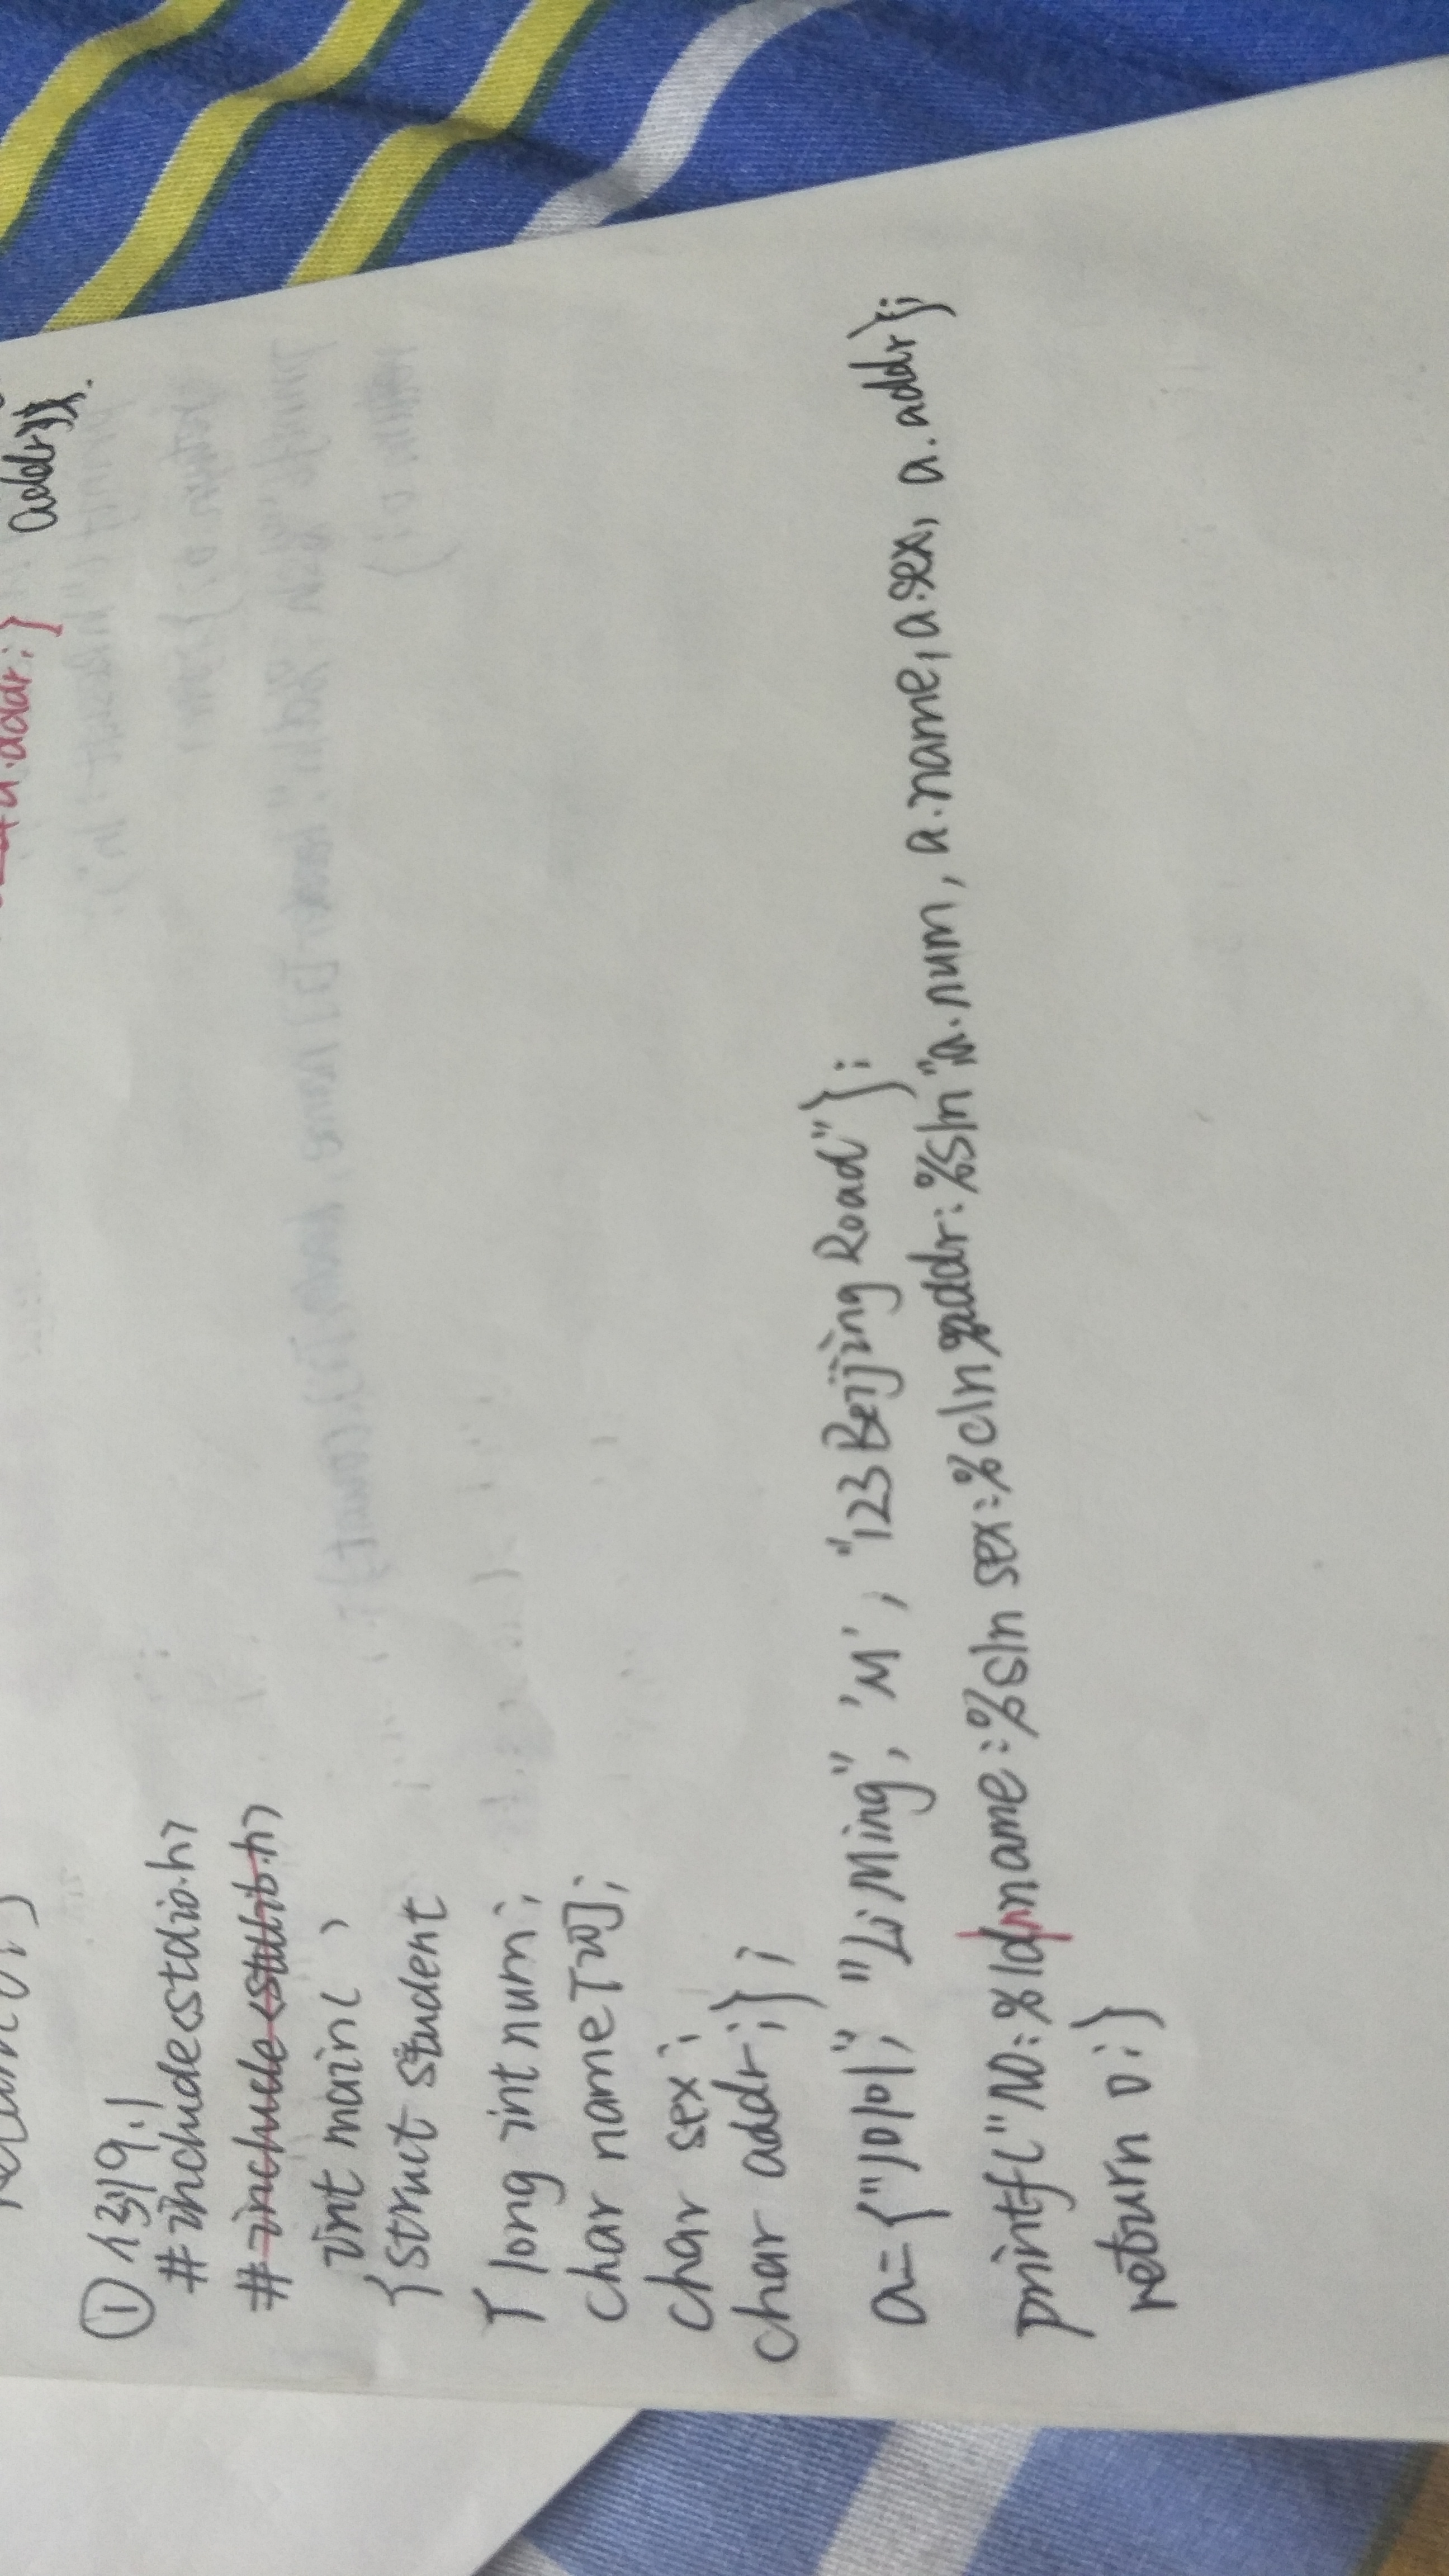 return 0;}
a.addr;}
addr
① 例9.1
#include<stdio.h>
#include<stdlib.h>
int main( )
{struct student
{ long int num;
char name[20];
char sex;
char addr;};
a={"10101", "Li Ming", 'M', "123 Beijing Road"};
printf("NO:%ld\nname:%s\n sex:%c\n %addr:%s\n",a.num, a.name, a.sex, a.addr};
return 0;}